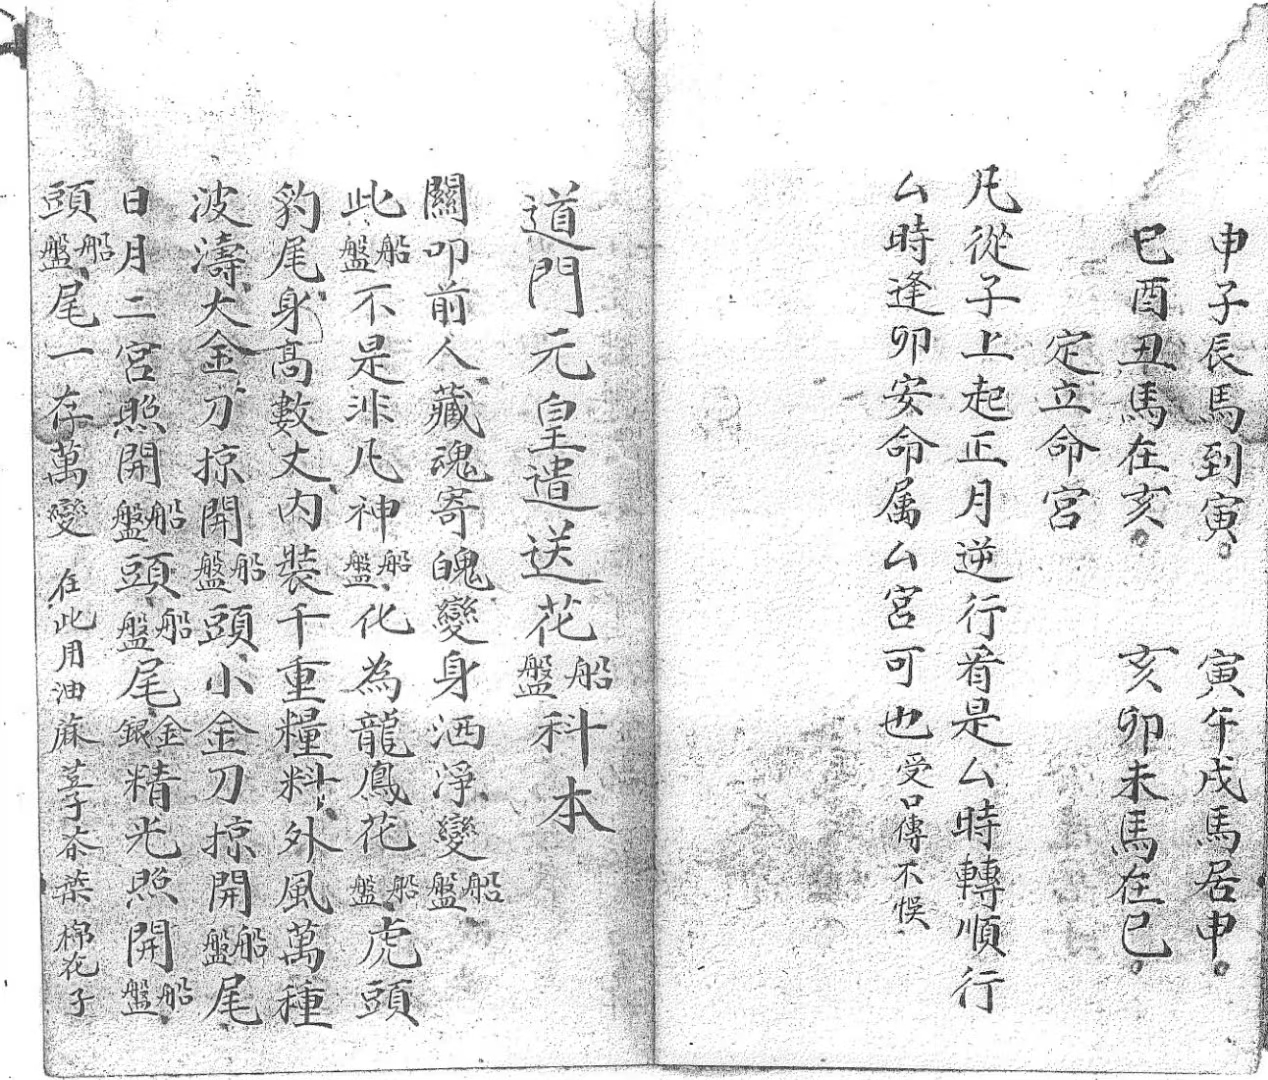 申子辰馬到寅。寅午戌馬居申。
巳酉丑馬在亥。亥卯未馬在巳。
定立命宮
凡從子上起正月逆行看是厶時轉順行
厶時逢卯安命属厶宮可也受口傳不悮
道門元皇遣送花船盤科本
關叩前人藏魂寄魄變身洒淨變船盤
此船盤不是非凡神船盤化為龍鳳花船盤虎頭
豹尾身高數丈内裝千重糧料外風萬種
波濤大金刀掠開船盤頭小金刀掠開船盤尾
日月二宮照開船盤頭船盤尾金銀精光照開船盤
頭船盤尾一存萬變在此用油蔴茶葉棉花子